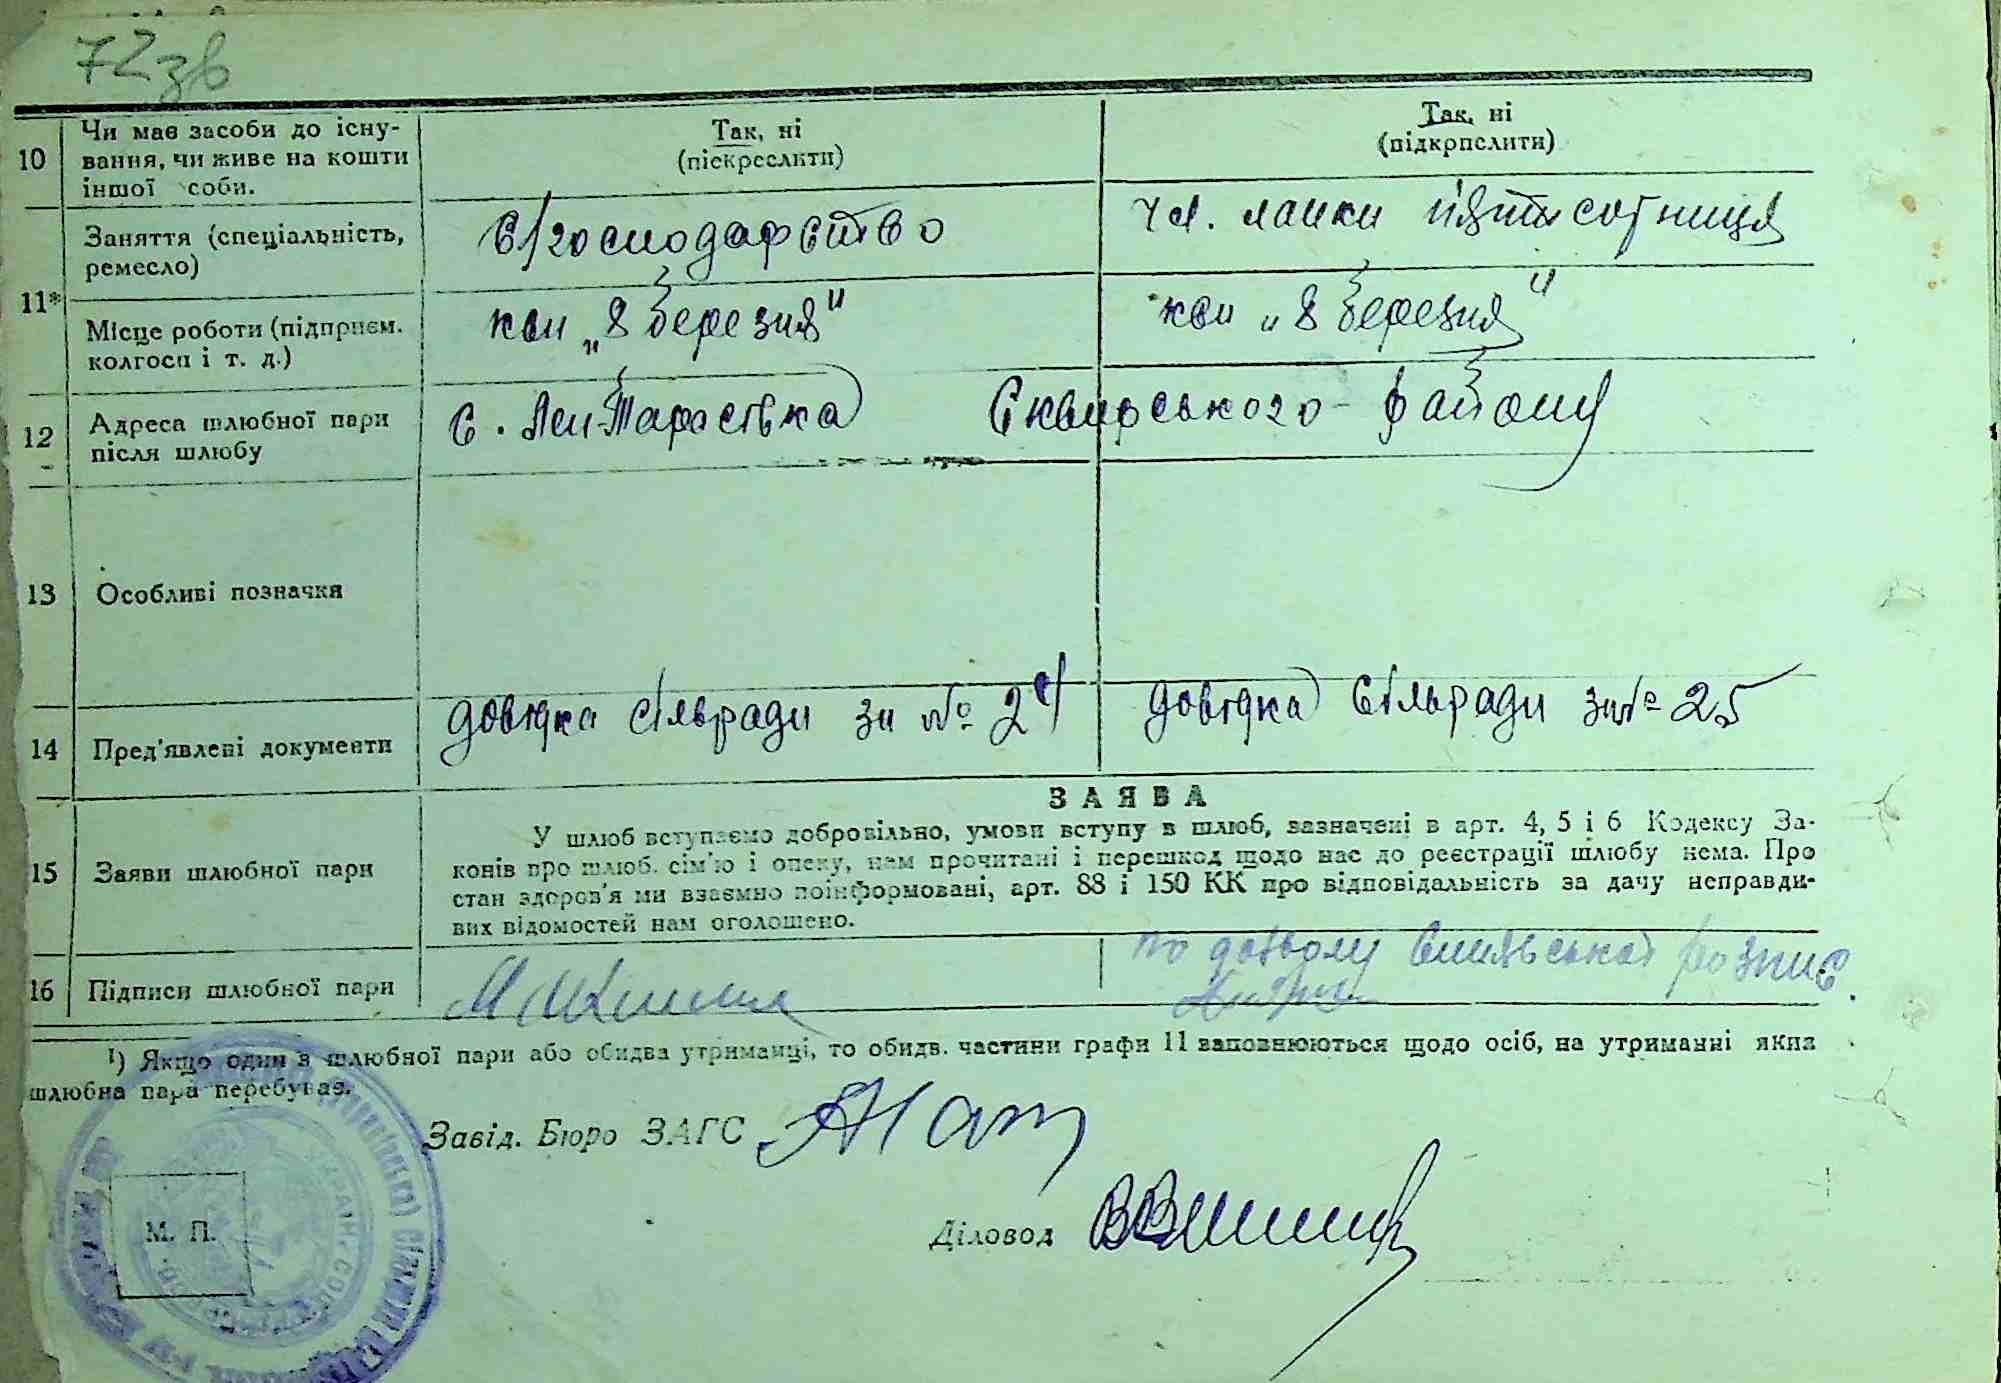 72зв
10 Чи має засоби до існу-
вання, чи живе на кошти
іншої соби.
Так, ні
(піскреслити)
Так, ні
(підкрпслити)
11* Заняття (спеціальність,
ремесло)
с/господарство
чл. ланки п'ятисотниця
Місце роботи (підприєм.
колгосп і т. д.)
кол „8 березня"
кол „8 березня"
12 Адреса шлюбної пари
після шлюбу
с. Лен-Тарасівка Сквирського району
13 Особливі позначкя
14 Пред'явлені документи
довідка сільради за № 24
довідка сільради за № 25
ЗАЯВА
15 Заяви шлюбної пари
У шлюб вступаємо добровільно, умови вступу в шлюб, зазначені в арт. 4, 5 і 6 Кодексу За-
конів про шлюб. сім'ю і опеку, нам прочитані і перешкод щодо нас до реєстрації шлюбу нема. Про
стан здоров'я ми взаємно поінформовані, арт. 88 і 150 КК про відповідальність за дачу неправди-
вих відомостей нам оголошено.
16 Підписи шлюбної пари
по дозволу розпис
¹) Якщо один з шлюбної пари або обидва утриманці, то обидв. частини графи 11 заповнюються щодо осіб, на утриманні яких
шлюбна пара перебуває.
Завід. Бюро ЗАГС
М. П.
Діловод